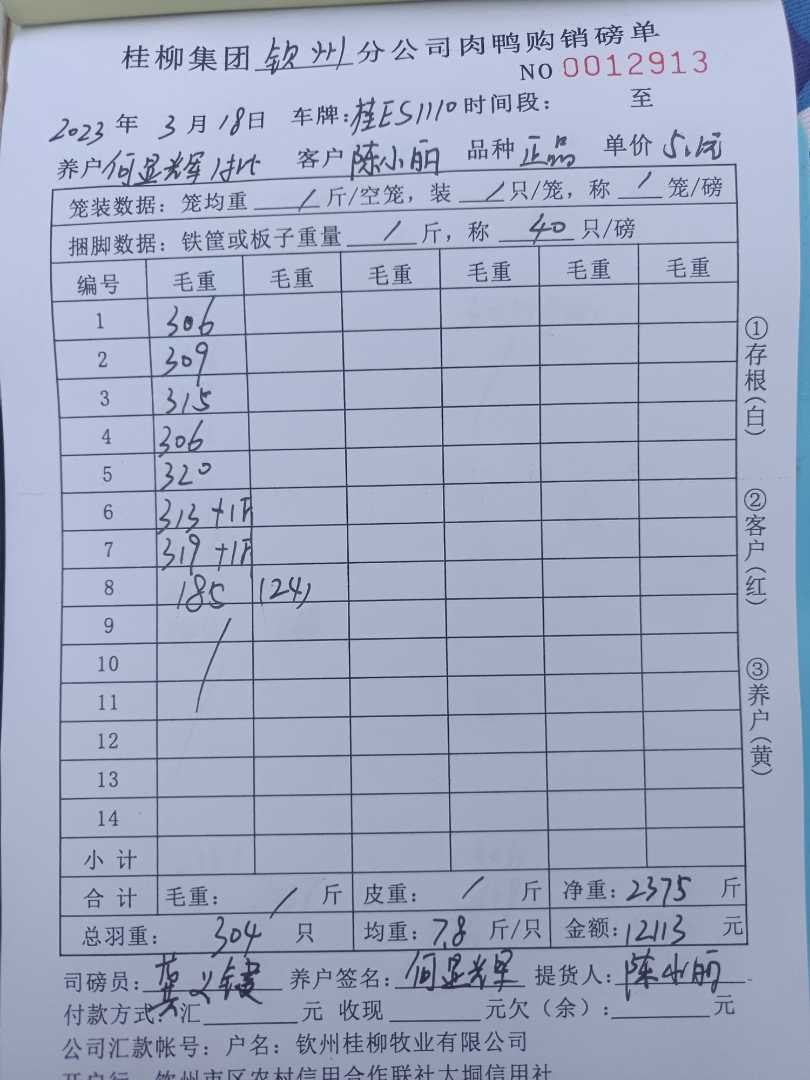 桂柳集团钦州分公司肉鸭购销磅单
NO 0012913
2023年3月18日 车牌:桂ES1110 时间段: 至
养户何显辉 客户陈小丽 品种正品 单价5.1元
笼装数据:笼均重/斤/空笼,装/只/笼,称/笼/磅
捆脚数据:铁筐或板子重量/斤,称40只/磅
编号 毛重 毛重 毛重 毛重 毛重 毛重
1 306
2 309
3 315
4 306
5 320
6 313+1F
7 319+1F
8 185 (24)
9 /
10
11
12
13
14
小计
合计 毛重:/斤 皮重:/斤 净重:2375斤
总羽重:304只 均重:7.8斤/只 金额:12113元
司磅员: 养户签名:何显辉 提货人:陈小丽
付款方式:汇 元 收现 元欠(余): 元
公司汇款帐号:户名:钦州桂柳牧业有限公司
开户行:钦州市区农村信用合作联社大垌信用社
①存根(白)
②客户(红)
③养户(黄)